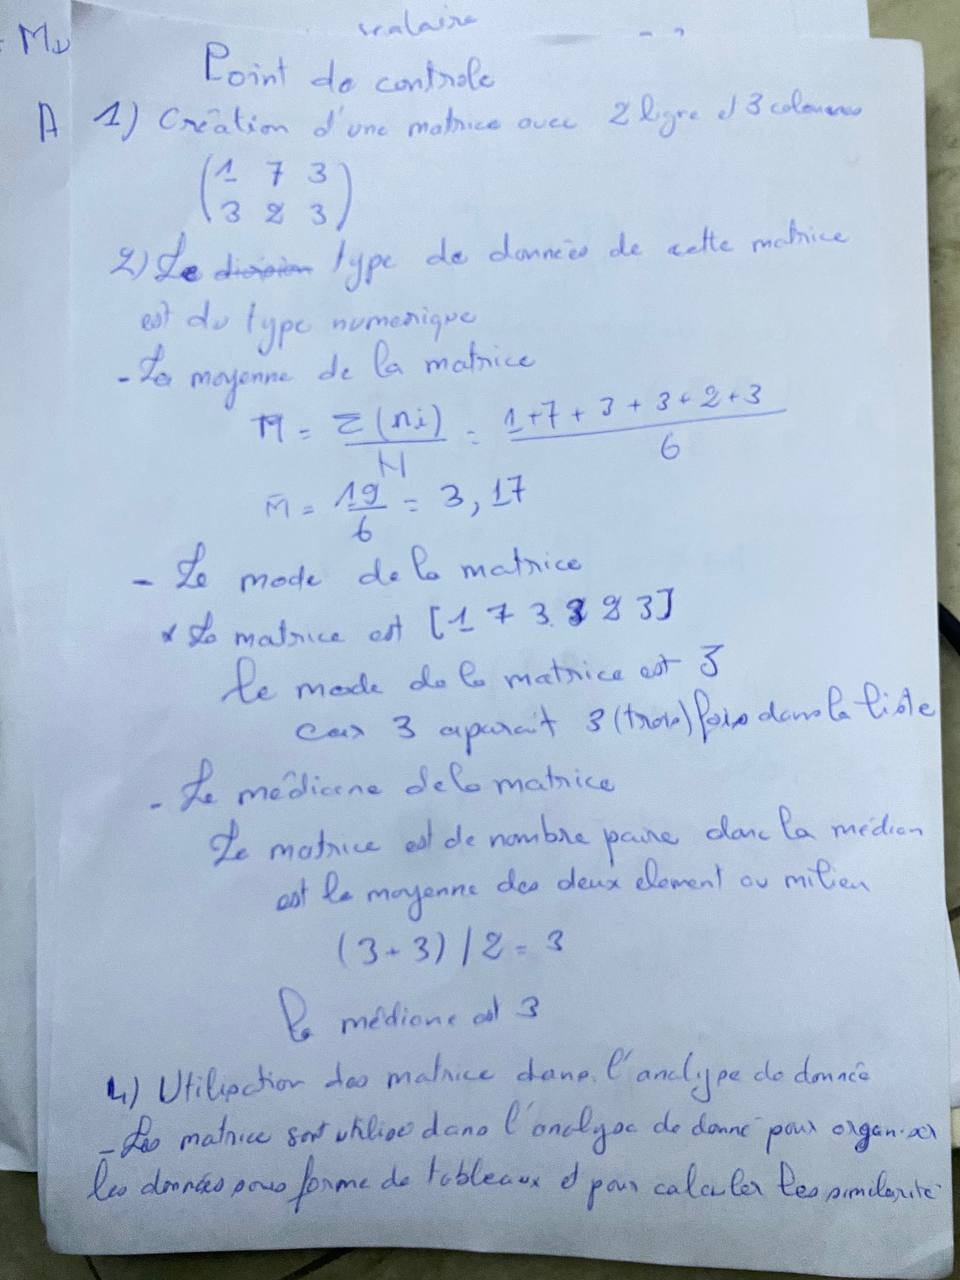 scalaire
Point de controle
A 1) Création d'une matrice avec 2 ligne et 3 colonnes
(1 7 3
3 2 3)
2) Le type de données de cette matrice
est du type numerique
- La moyenne de la matrice
M = Σ(ni)/N = 1+7+3+3+2+3/6
M̄ = 19/6 = 3,17
- Le mode de la matrice
* La matrice est [1 7 3 3 2 3]
le mode de la matrice est 3
car 3 aparait 3 (trois) fois dans la liste
- Le médiane de la matrice
La matrice est de nombre paire donc la médian
est la moyenne des deux element au milieu
(3+3)/2 = 3
la médiane est 3
4) Utilisation des matrice dans l'analyse de donnée
- Les matrice sont utilisé dans l'analyse de donné pour organiser
les données sous forme de tableaux et pour calculer les similarité